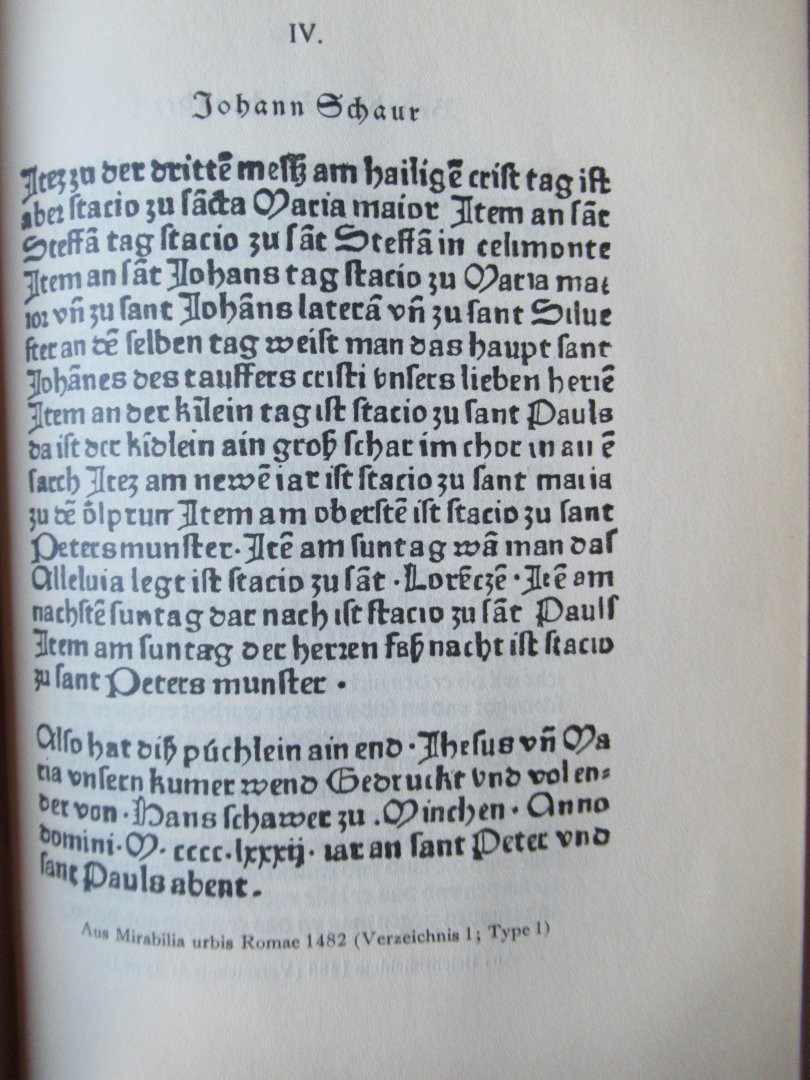 IV.
Johann Schaur
Itez zu der drittē mesß am hailigē crist tag ist
aber stacio zu sācta Maria maior Item an sāt
Steffā tag stacio zu sāt Steffā in celimonte
Item an sāt Johans tag stacio zu Maria mai
ior vn̄ zu sant Johāns laterā vn̄ zu sant Silue
ster an dē selben tag weist man das haupt sant
Johānes des tauffers cristi vnsers lieben herrē
Item an der kīlein tag ist stacio zu sant Pauls
da ist der kīdlein ain groß schar im chor in
sarch Itez am newē iar ist stacio zu sant maria
zu dē Item am oberstē ist stacio zu sant
Petersmunster · Itē am suntag wā man das
Alleluia legt ist stacio zu sāt · Lorēczē · Itē am
nachstē suntag dar nach ist stacio zu sāt Pauls
Item am suntag der herren faßnacht ist stacio
zu sant Peters munster ·
Also hat diß púchlein ain end · Jhesus vn̄ Ma
ria vnsern kumer wend Gedruckt vnd volen=
der von · Hans schawer zu . Minchen · Anno
domini · M · cccc · lxxxij · iar an sant Peter vnd
sant Pauls abent .
Aus Mirabilia urbis Romae 1482 (Verzeichnis 1; Type 1)